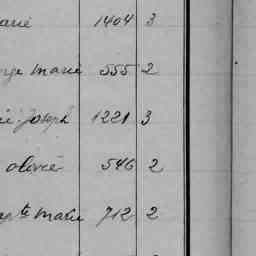 arie 1404 3
rge Marie 555 2
ie Joseph 1221 3
olivié 546 2
pte Marie 712 2